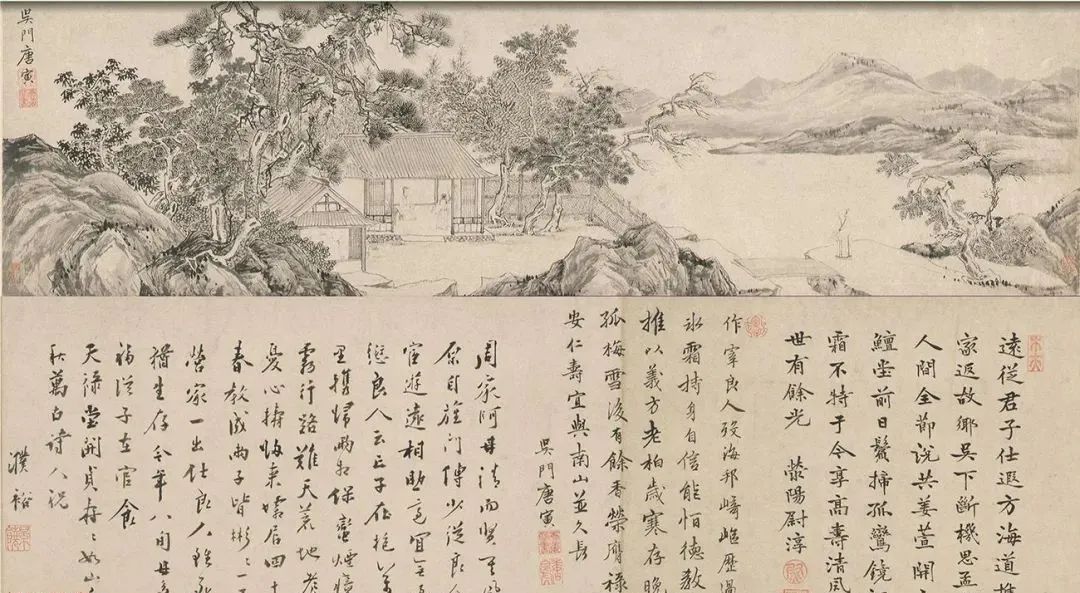 吳門唐寅
遠從君子仕遐方海道攜
家返故鄉吳下斷機思孟
人間全節說共姜萱開
鱣堂前日鬢掃孤鸞鏡
霜不特于今享高壽清風
世有餘光 滎陽尉淳
作宰良人歿海邦崎嶇歷過
冰霜持身自信能怕德教
推以義方老柏歲寒存晚
孤梅雪後有餘香榮膺祿
安仁壽宜與南山並久長
吳門唐寅
周家阿母清而賢
原自旌門傳少從良
宦遊遠相助宜
良人云亡子在抱萬
里攜歸兩相保蠻煙瘴
霧行路難天荒地老
憂心擣歸來嫠居四十
春教成兩子皆彬彬一
營家一出仕良人雖死
猶生存今年八旬母
福從子在官食
天祿堂開貞壽如山
秋萬古詩人說
濮裕